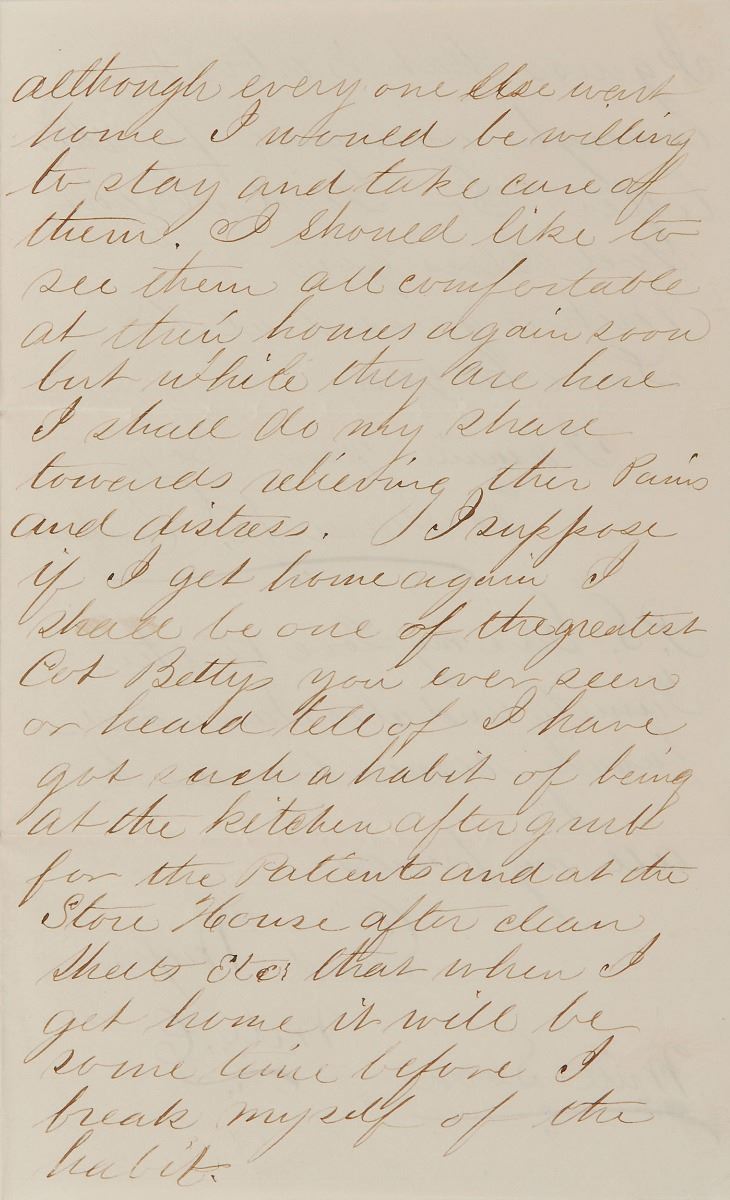 although every one else went
home I would be willing
to stay and take care of
them. I should like to
see them all comfortable
at their homes again soon
but while they are here
I shall do my share
towards relieving ther Pains
and distress. I suppose
if I get home again I
shall be one of the greatest
Cot Bettys you ever seen
or heard tell of I have
got such a habit of being
at the kitchen after grub
for the Patients and at the
Store House after clean
sheets Etc that when I
get home it will be
some time before I
break myself of the
habit.